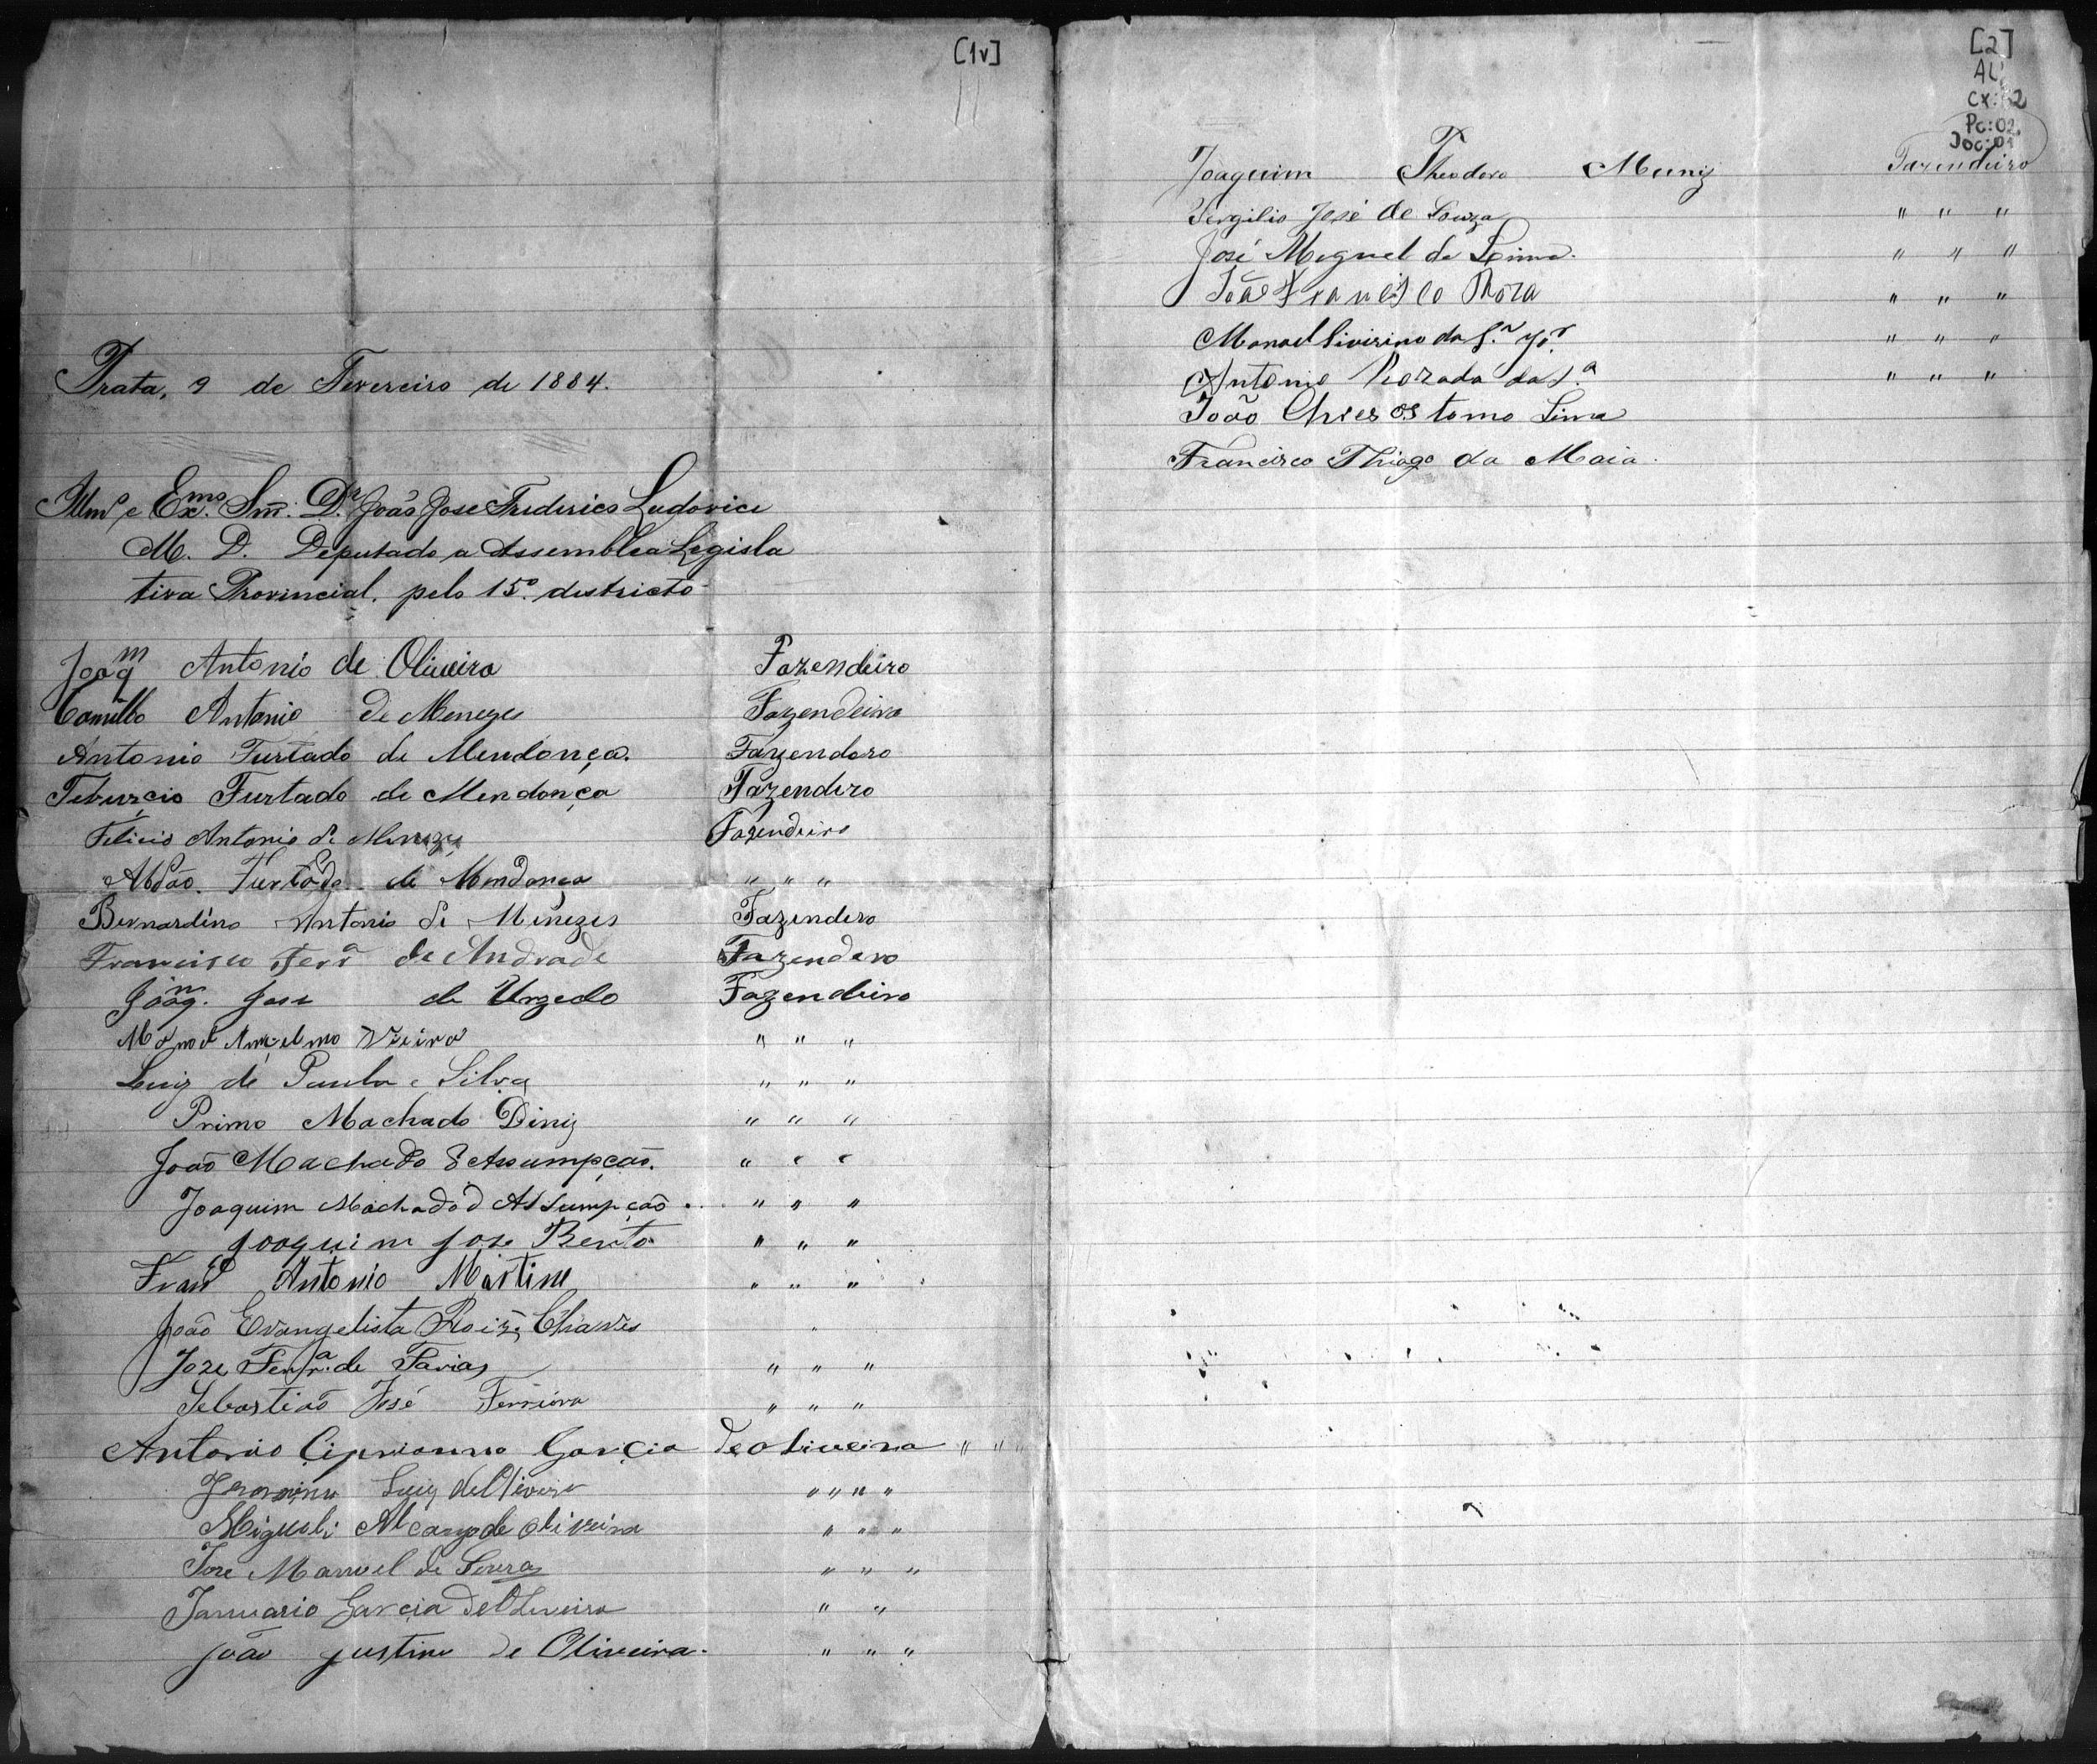 [1v]
Prata, 9 de Fevereiro de 1884.
Illmo e Exmo. Snr. Dr. João Jose Frederico Ludovice
M. D. Deputado a Assemblea Legisla
tiva Provincial. pelo 15º. districto
Joaqm Antonio de Oliveira Fazendeiro
Camillo Antonio de Menezes Fazendeiro
Antonio Furtado de Mendonça. Fazendero
Teburcio Furtado de Mendonça Fazendero
Felicio Antonio de Menezes Fazendeiro
Abdão. Furtado de Mendonça " " "
Bernardino Antonio de Menezes Fazendero
Francisco Ferra de Andrade Fazendero
Joaqm. Jose de Urzedo Fazendeiro
Manoel Anselmo Vieira " " "
Luiz de Paula e Silva " " "
Primo Machado Diniz " " "
João Machado d Assumpção. " " "
Joaquim Machado d Assumpção . . . " " "
Joaquim Jose Bento " " "
Franco Antonio Martins " " "
João Evangelista Roiz Chaves "
Joze Ferra. de Farias " " "
Sebastião José Ferreira " " "
Antonio Ciprianno Garcia de oliveira " " "
Jeronimo Luiz de Oliveira " " " "
Miguel Alcanjo de oliveira " " "
Jose Manoel de Souza " " "
Januario Garcia de Oliveira " "
João Justino de Oliveira. " " "
[2]
AL
Cx: 2
Pc: 02
Doc: 01
Joaquim Theodoro Muniz Fazendeiro
Vergilio José de Souza " " "
José Meguel de Lima. " " "
João Francisco Rosa " " "
Manoel Siverino da Sa " " "
Antonio da Sa " " "
João Chresostomo Lima
Francisco Thiago da Maia.